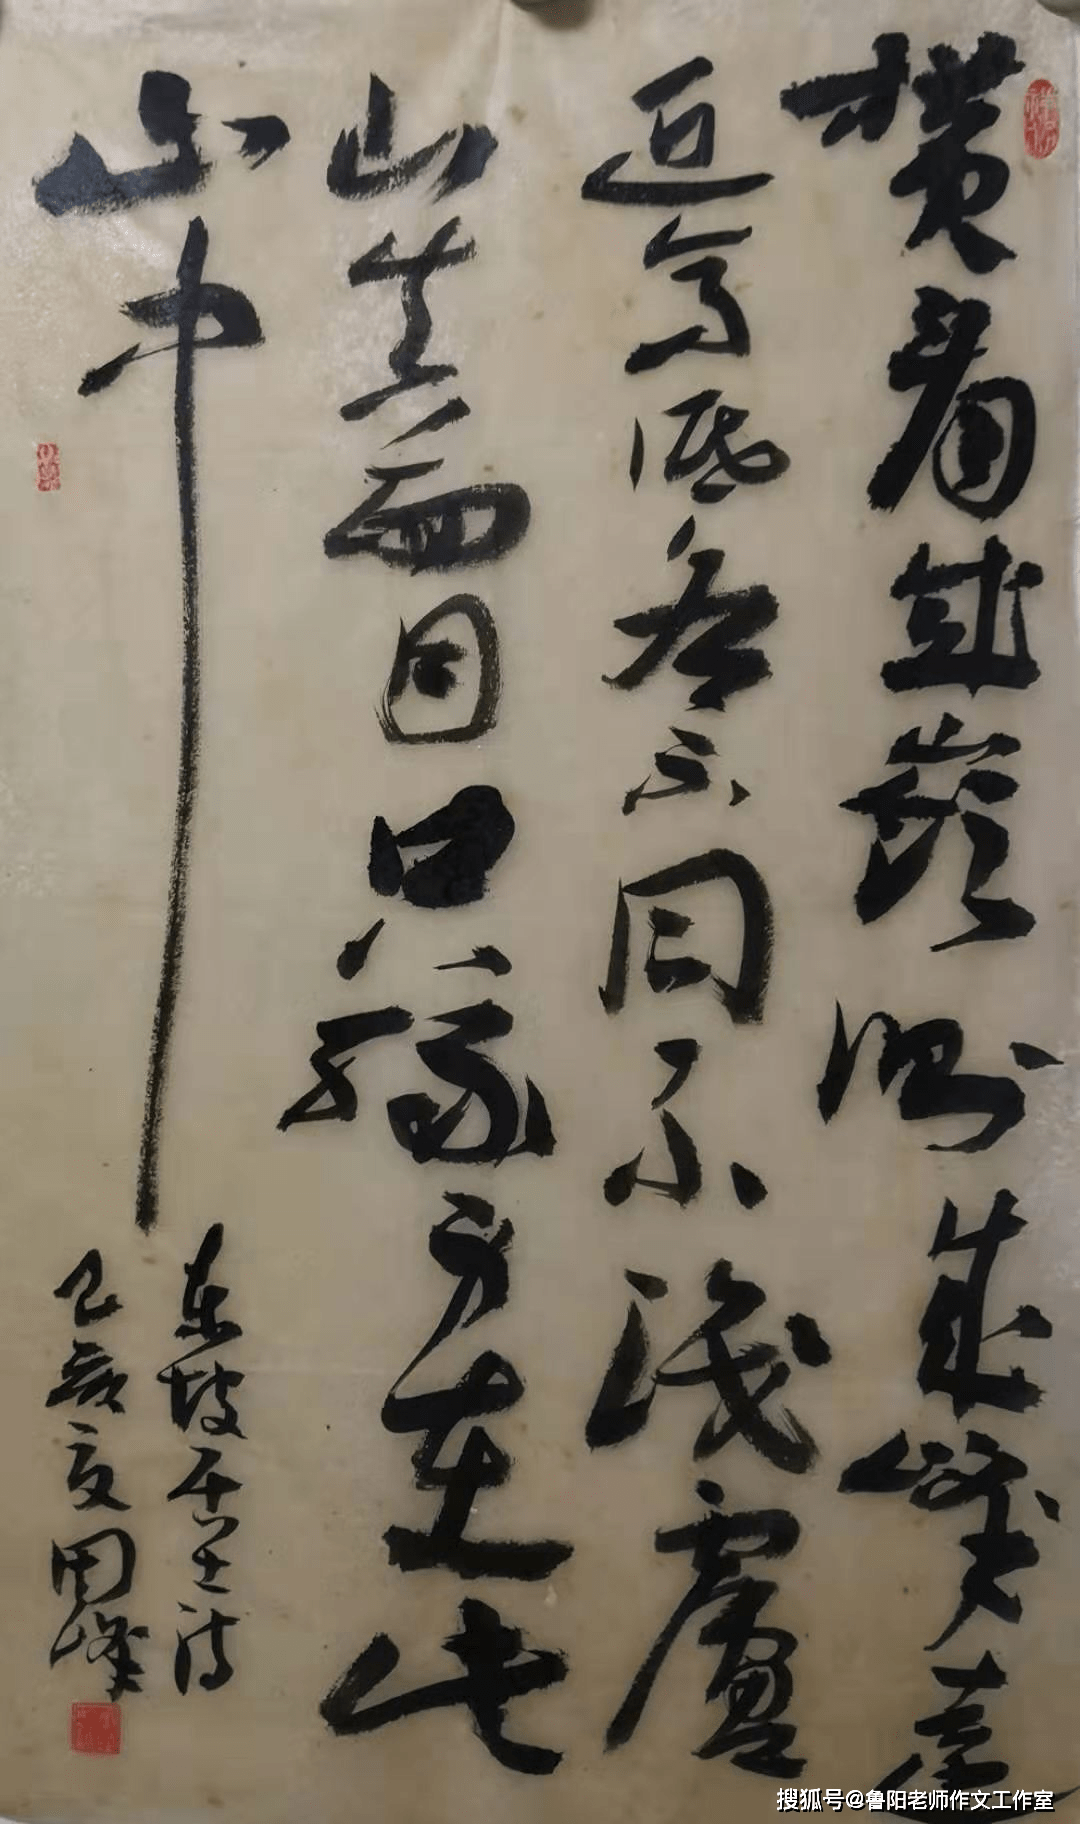 横看成嶺側成峰遠
近高低各不同不識廬
山真面目只緣身在此
山中
东坡居士诗
己亥夏周峰
搜狐号@鲁阳老师作文工作室